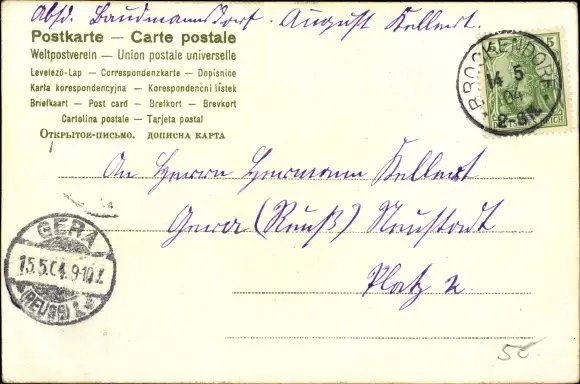 Absd. Baudmannsdorf. August Kellert.
Postkarte — Carte postale
Weltpostverein — Union postale universelle
Levelező-Lap — Correspondenzkarte — Dopisnice
Karta korespondencyjna — Korespondenční lístek
Briefkaart — Post card — Brefkort — Brevkort
Cartolina postale — Tarjeta postal
Открытое-письмо. дописна карта
BROCKENDORF
14 5
04
2-3N.
5
An Herrn Hermann Kellert
Gera (Reuß) Neustadt
Platz 2.
GERA
15.5.04. 9-10 V.
(REUSS)
5.-